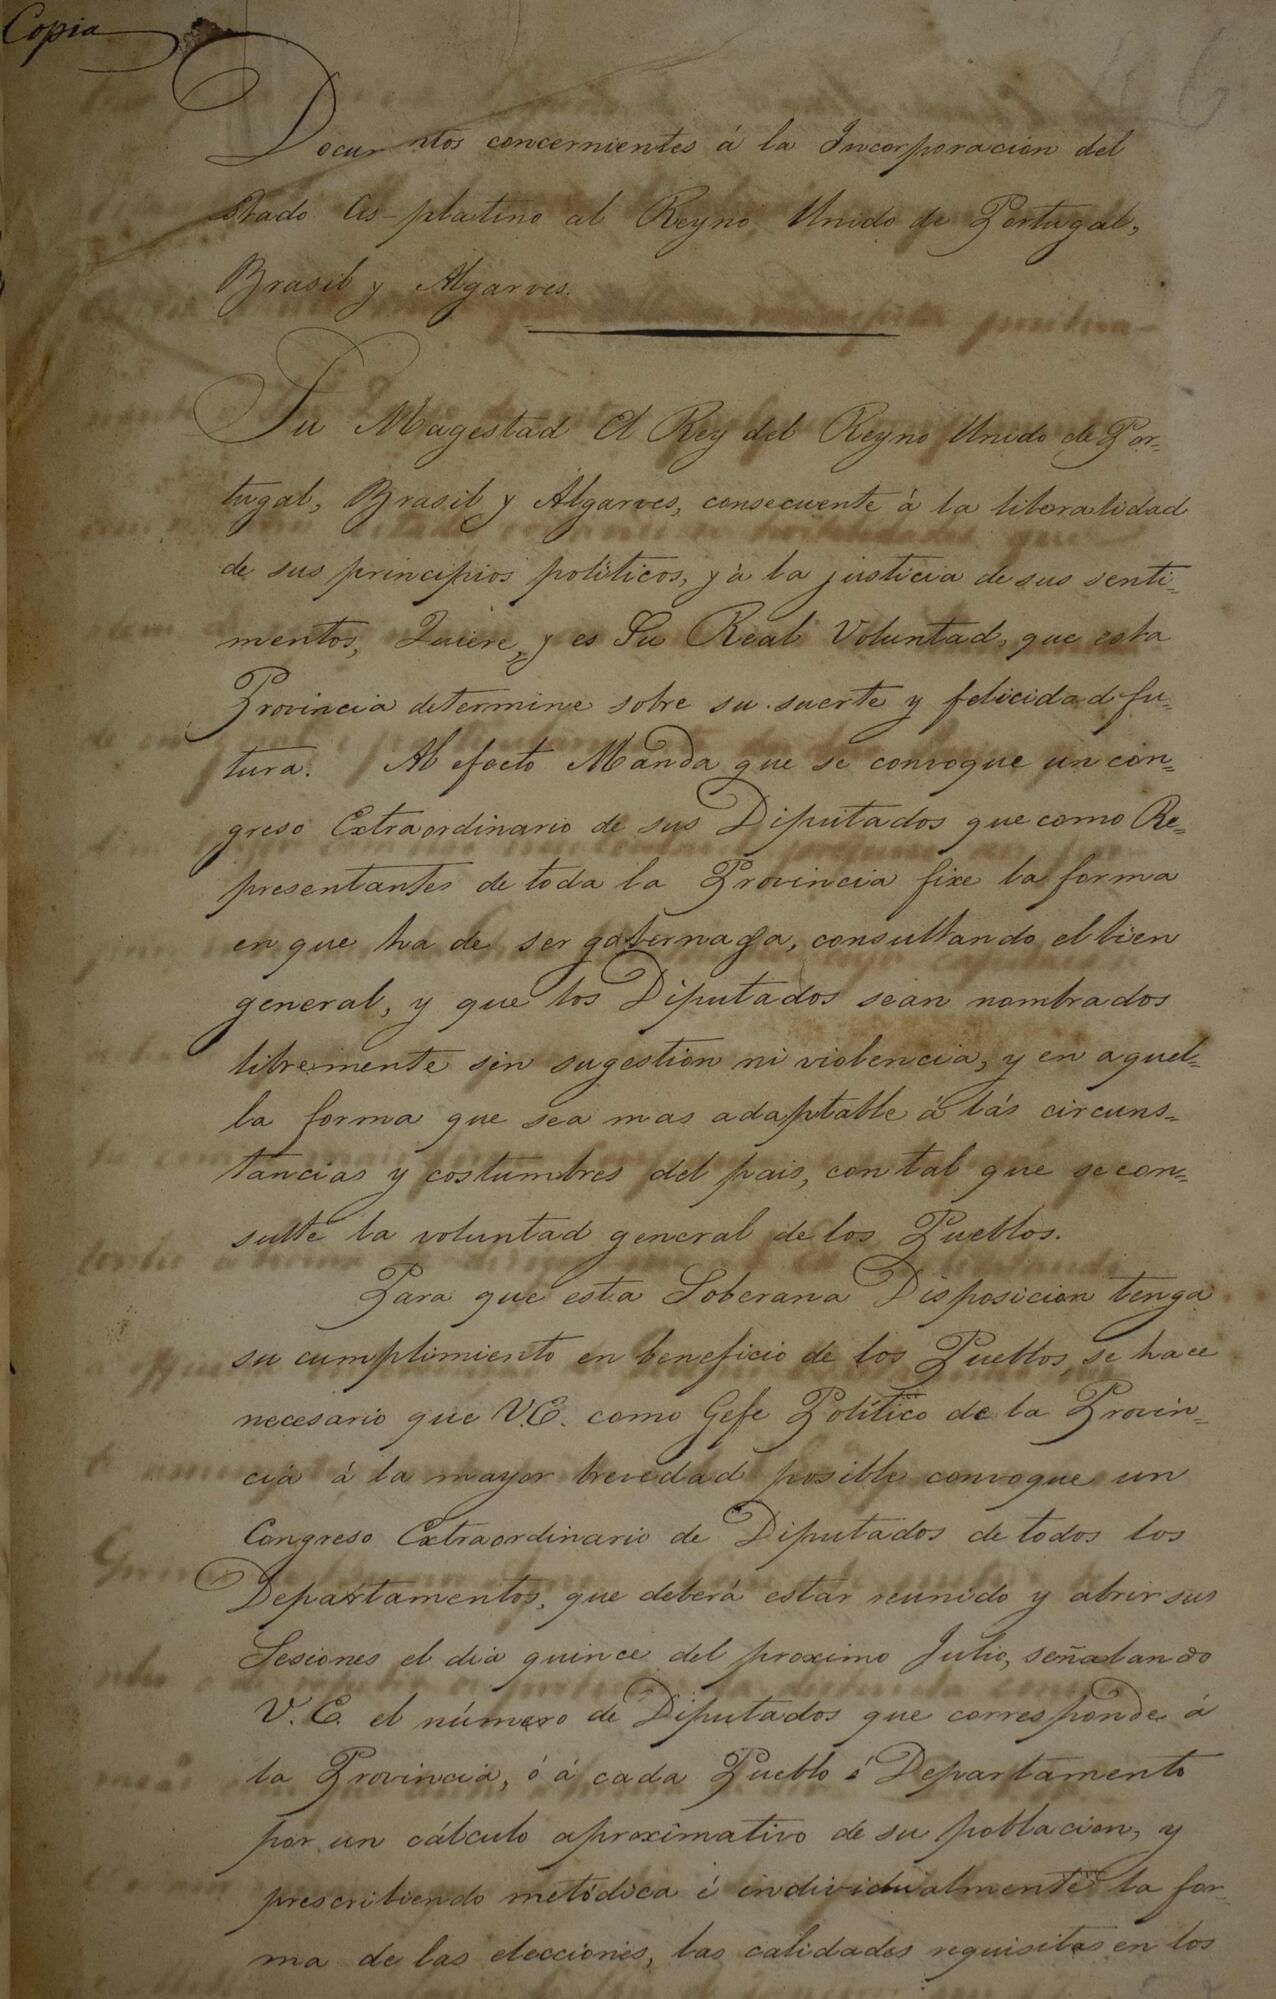 Copia
Documtos concernientes á la Incorporacion del
Stado Cis-platino al Reyno Unido de Portugal,
Brasil y Algarves.
Su Magestad El Rey del Reyno Unido de Por=
tugal, Brasil y Algarves, consecuente á la liberalidad
de sus principios politicos, y á la justicia de sus senti=
mentos, Quiere, y es Su Real Voluntad, que esta
Provincia determine sobre su suerte y felicidad fu=
tura. Al efecto Manda que se convoque un con=
greso Extraordinario de sus Diputados que como Re=
presentantes de toda la Provincia fixe la forma
en que ha de ser gobernada, consultando el bien
general, y que los Diputados sean nombrados
libremente sin sugestion ni violencia, y en aquel=
la forma que sea mas adaptable á lás circuns=
tancias y costumbres del pais, con tal que se con=
sulte la voluntad general de los Pueblos.
Para que esta Soberana Disposicion tenga
su cumplimiento en beneficio de los Pueblos, se hace
necesario que V.E. como Gefe Político de la Provin=
cia á la mayor brevedad posible convoque un
Congreso Extraordinario de Diputados de todos los
Departamentos, que deberá estar reunido y abrir sus
Sesiones el dia quince del proximo Julio, señalando
V. E. el número de Diputados que corresponde á
la Provincia, ó á cada Pueblo ó Departamento
por un cálculo aproximativo de su poblacion, y
prescribiendo metódica é individualmente la for=
ma de las elecciones, las calidades requisitas en los